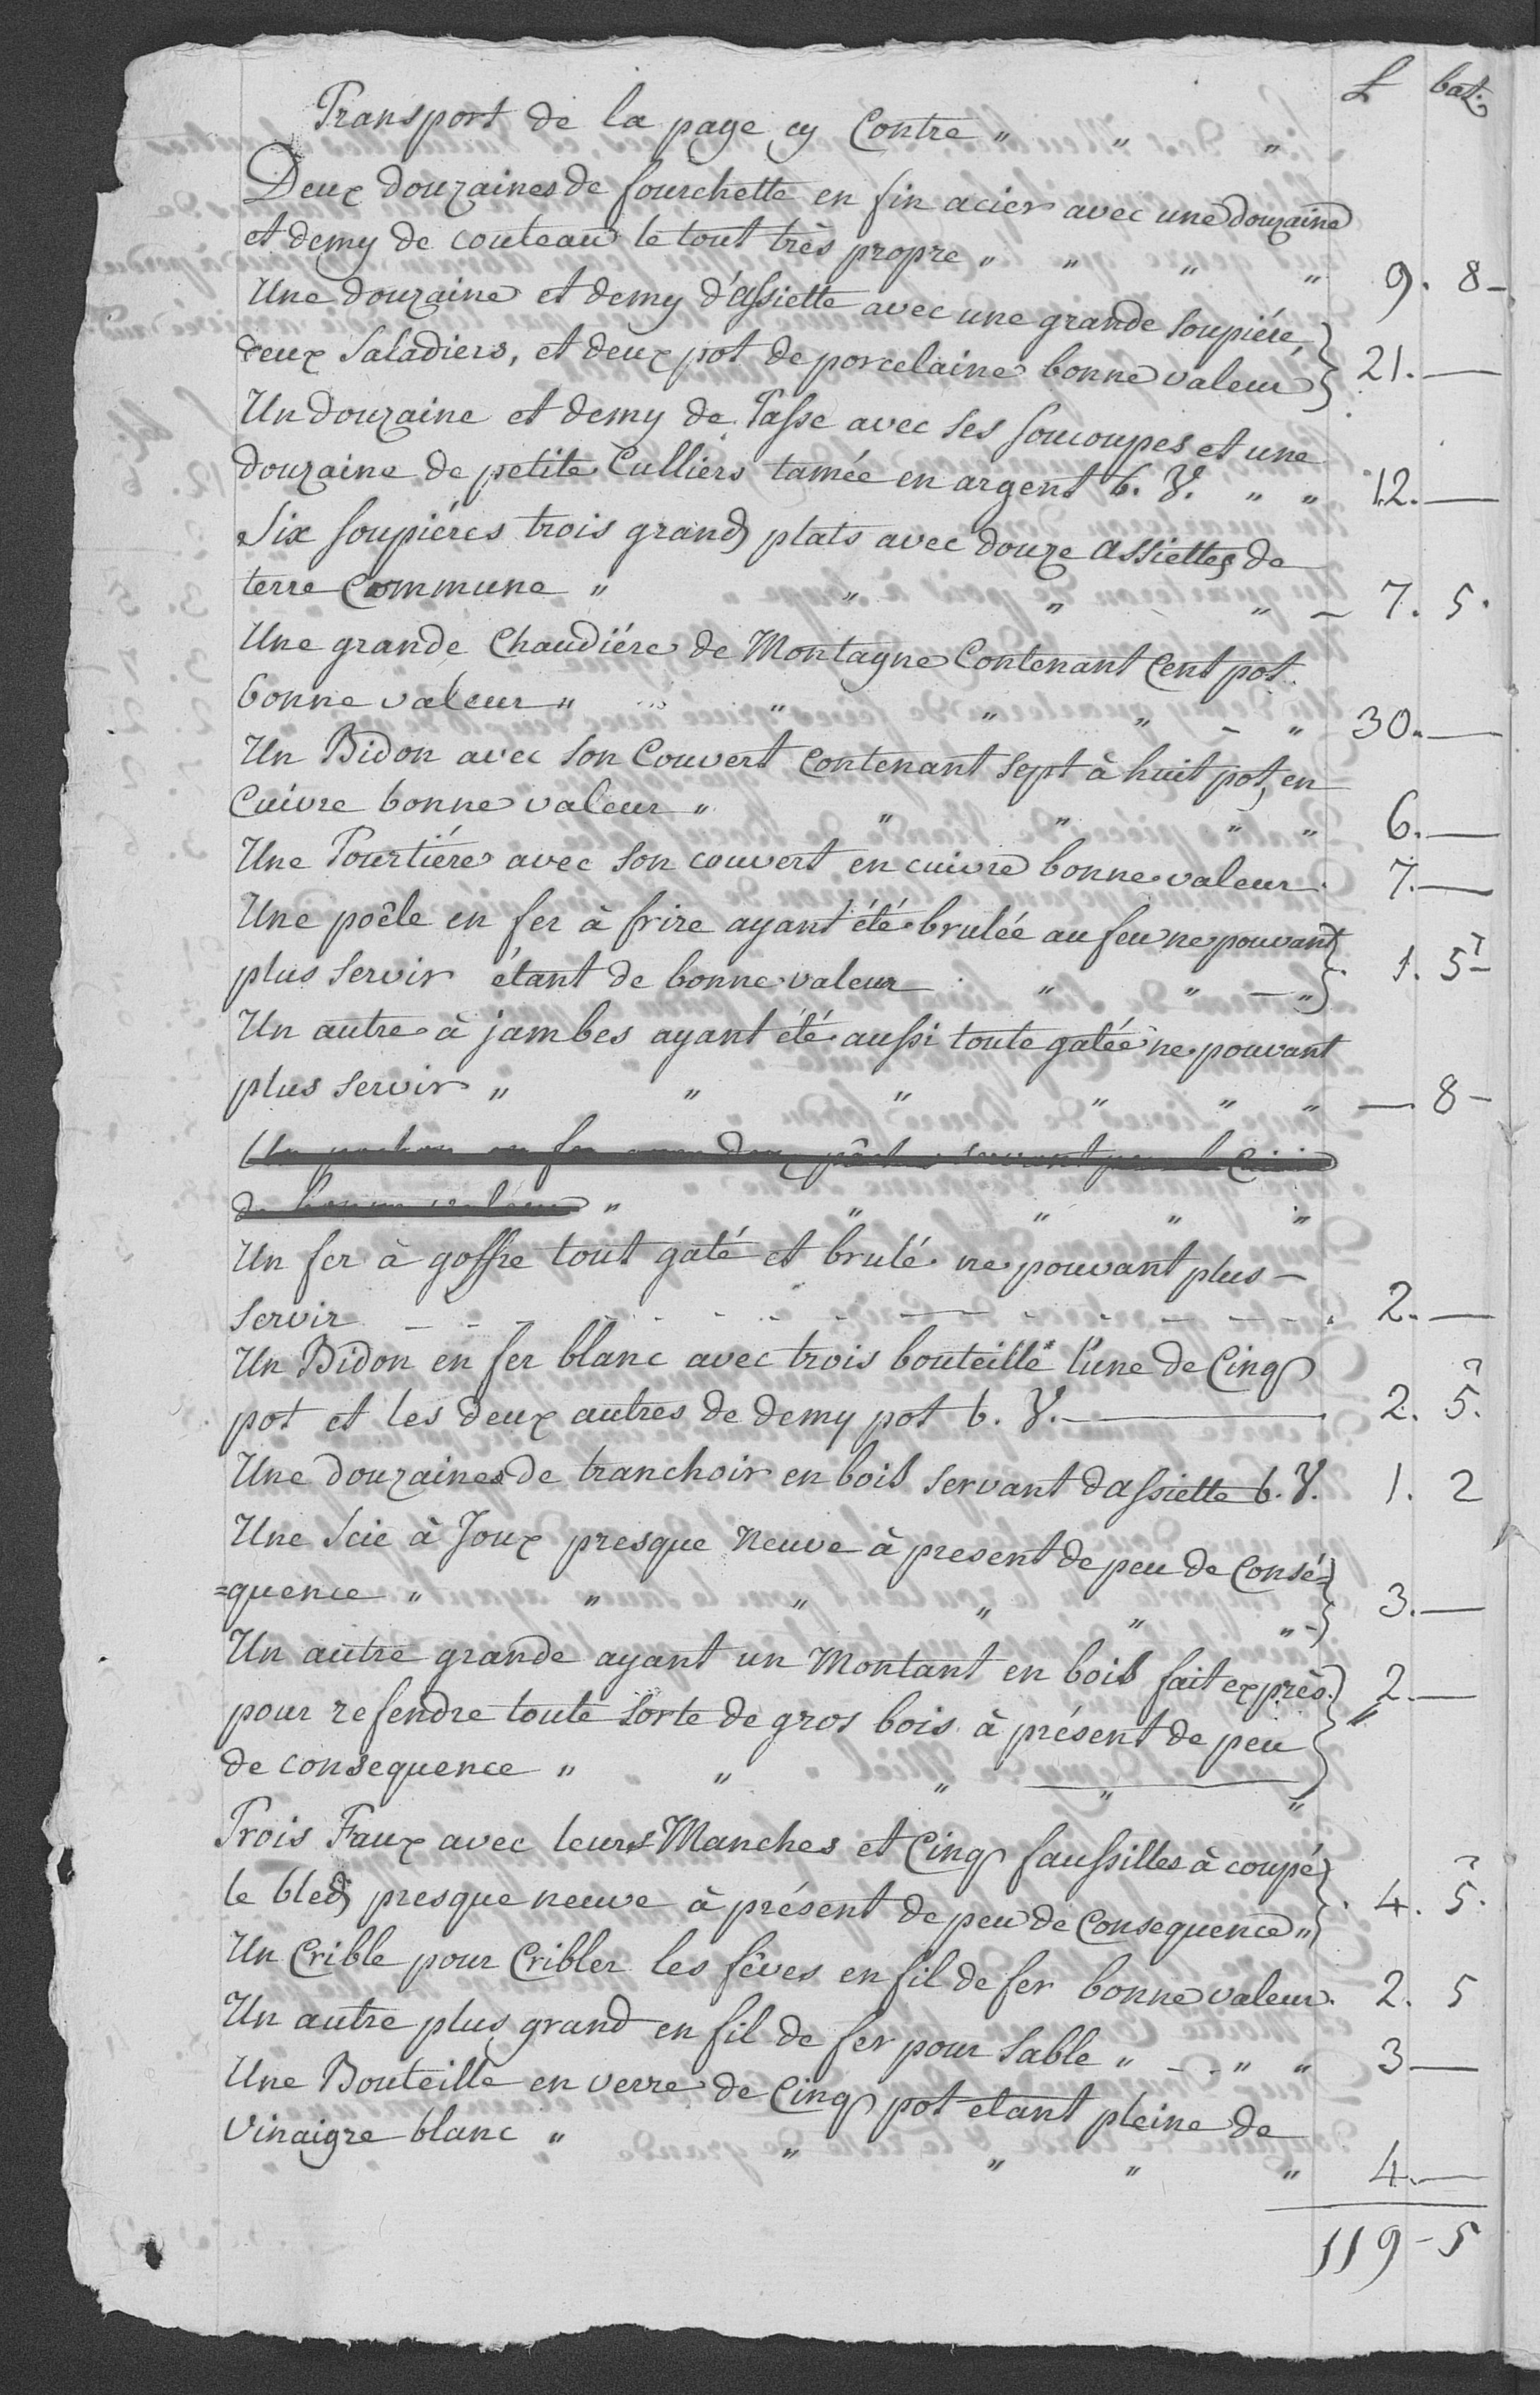 L batz
Transport de la page cy Contre " " "
Deux douzaines de fourchette en fin acier avec une douzaine
et demy de couteau le tout très propre " " " " 9. 8 -
Une douzaine et demy d'assiette avec une grande soupiére,
deux Saladiers, et deux pot de porcelaine bonne valeur } 21. —
Un douzaine et demy de Tasse avec ses soucoupes et une
douzaine de petite Culliers tamée en argent b. V. " " 12. —
Six soupiéres trois grand plats avec douze assiettes de
terre Commune " " " " — 7. 5.
Une grande Chaudiére de Montagne Contenant Cent pot
bonne valeur " " " " - " 30. —
Un Bidon avec son Couvert Contenant sept à huit pot, en
Cuivre bonne valeur " " " " " 6. —
Une Tourtiére avec son couvert en cuivre bonne valeur. 7. —
Une poêle en fer à frire ayant été brulée au feu ne pouvant
plus servir étant de bonne valeur " " — " } 1. 5 -
Un autre à jambes ayant été aussi toute gatée ne pouvant
plus servir " " " " " " — 8 -
en fer servant
de bonne valeur " " " " "
Un fer à goffre tout gaté et brulé ne pouvant plus -
servir 2. —
Un Bidon en fer blanc avec trois bouteille l'une de Cinq
pot et les deux autres de demy pot b. V. — 2. 5.
Une douzaines de tranchoir en bois servant dassiette b. V. 1. 2
Une Scie à Joux presque Neuve à present de peu de Consé=
=quence " " " " " " - } 3. —
Un autre grande ayant un Montant en bois fait exprès. 2. —
pour refendre toute sorte de gros bois à présent de peu "
de consequence " " " " "
Trois Faux avec leurs Manches et Cinq faussilles à coupé
le bled presque neuve à présent de peu de Consequence " } 4. 5.
Un Crible pour Cribler les féves en fil de fer bonne valeur. 2. 5
Un autre plus grand en fil de fer pour Sable " - " " 3 —
Une Bouteille en verre de Cinq pot etant pleine de
Vinaigre blanc " " " " " 4. —
119 - 5